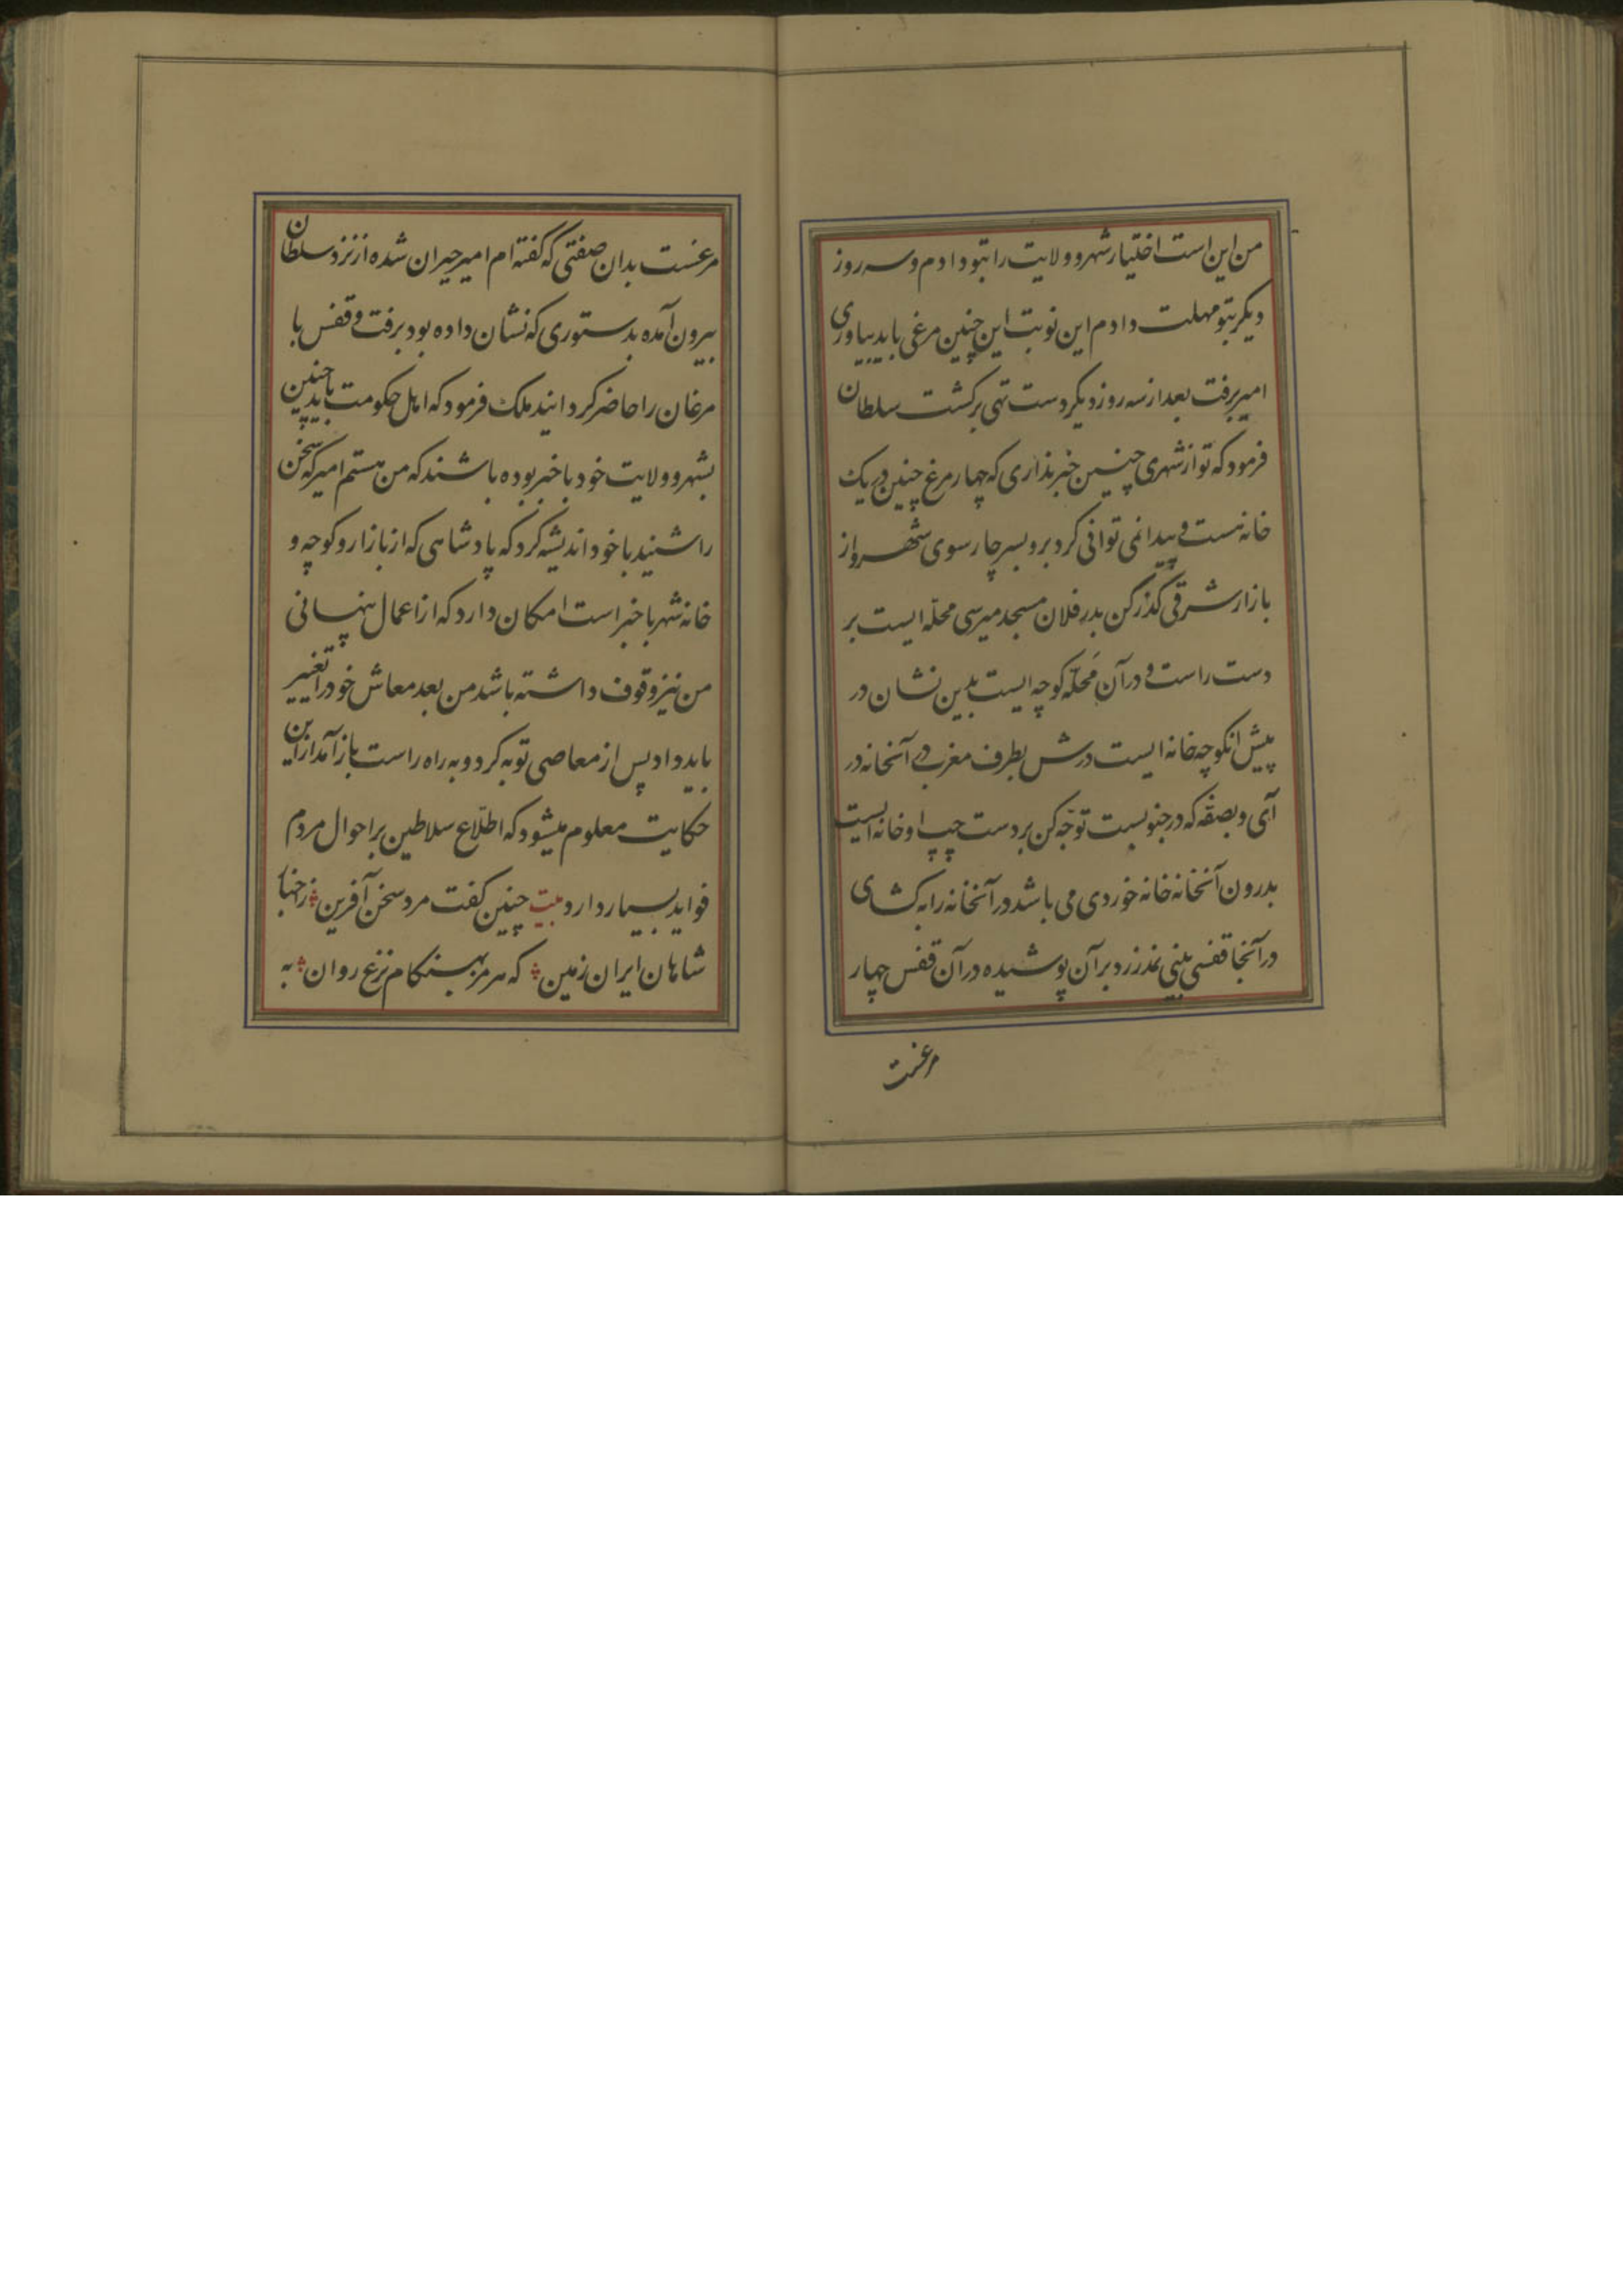 من این است اختیار شهر و ولایت را بتو دادم و سه روز
دیکر بتو مهلت دادم این نوبت این چنین مرغی باید بیاوری
امیر برفت بعد از سه روز دیکر دست تهی برکشت سلطان
فرمود که تو از شهری چنین خبر نداری که چهار مرغ چنین در یک
خانه هست و پیدا نمی توانی کرد برو بسر چار سوی شهر و از
بازار شرقی کذر کن بدر فلان مسجد میرسی محله ایست بر
دست راست و در آن محلّه کوچه ایست بدین نشان در
پیش انکوچه خانه ایست درش بطرف مغرب در آنخانه در
آی و بصفّه که در جنوبست توجّه کن بر دست چپ او خانه ایست
بدرون آنخانه خانه خوردی می باشد در آنخانه را به کشای
در آنجا قفسی بینی نمد زرد بر آن پوشیده در آن قفس چهار
مرغست
مرغست بدان صفتی که کفته ام امیر حیران شده از نزد سلطان
بیرون آمده بدستوری که نشان داده بود برفت و قفس با
مرغان را حاضر کردانید ملک فرمود که اهل حکومت باید چنین
بشهر و ولایت خود با خبر بوده باشند که من هستم امیر که سخن
را شنید با خود اندیشه کرد که پادشاهی که از بازار و کوچه و
خانه شهر با خبر است امکان دارد که از اعمال پنهانی
من نیز وقوف داشته باشد من بعد معاش خود را تغییر
باید داد پس از معاصی توبه کرد و به راه راست باز آمد از این
حکایت معلوم میشود که اطلّاع سلاطین بر احوال مردم
فواید بسیار دارد بیت چنین کفت مرد سخن آفرین ز
شاهان ایران زمین که هرمز بهنکام نزع روان به